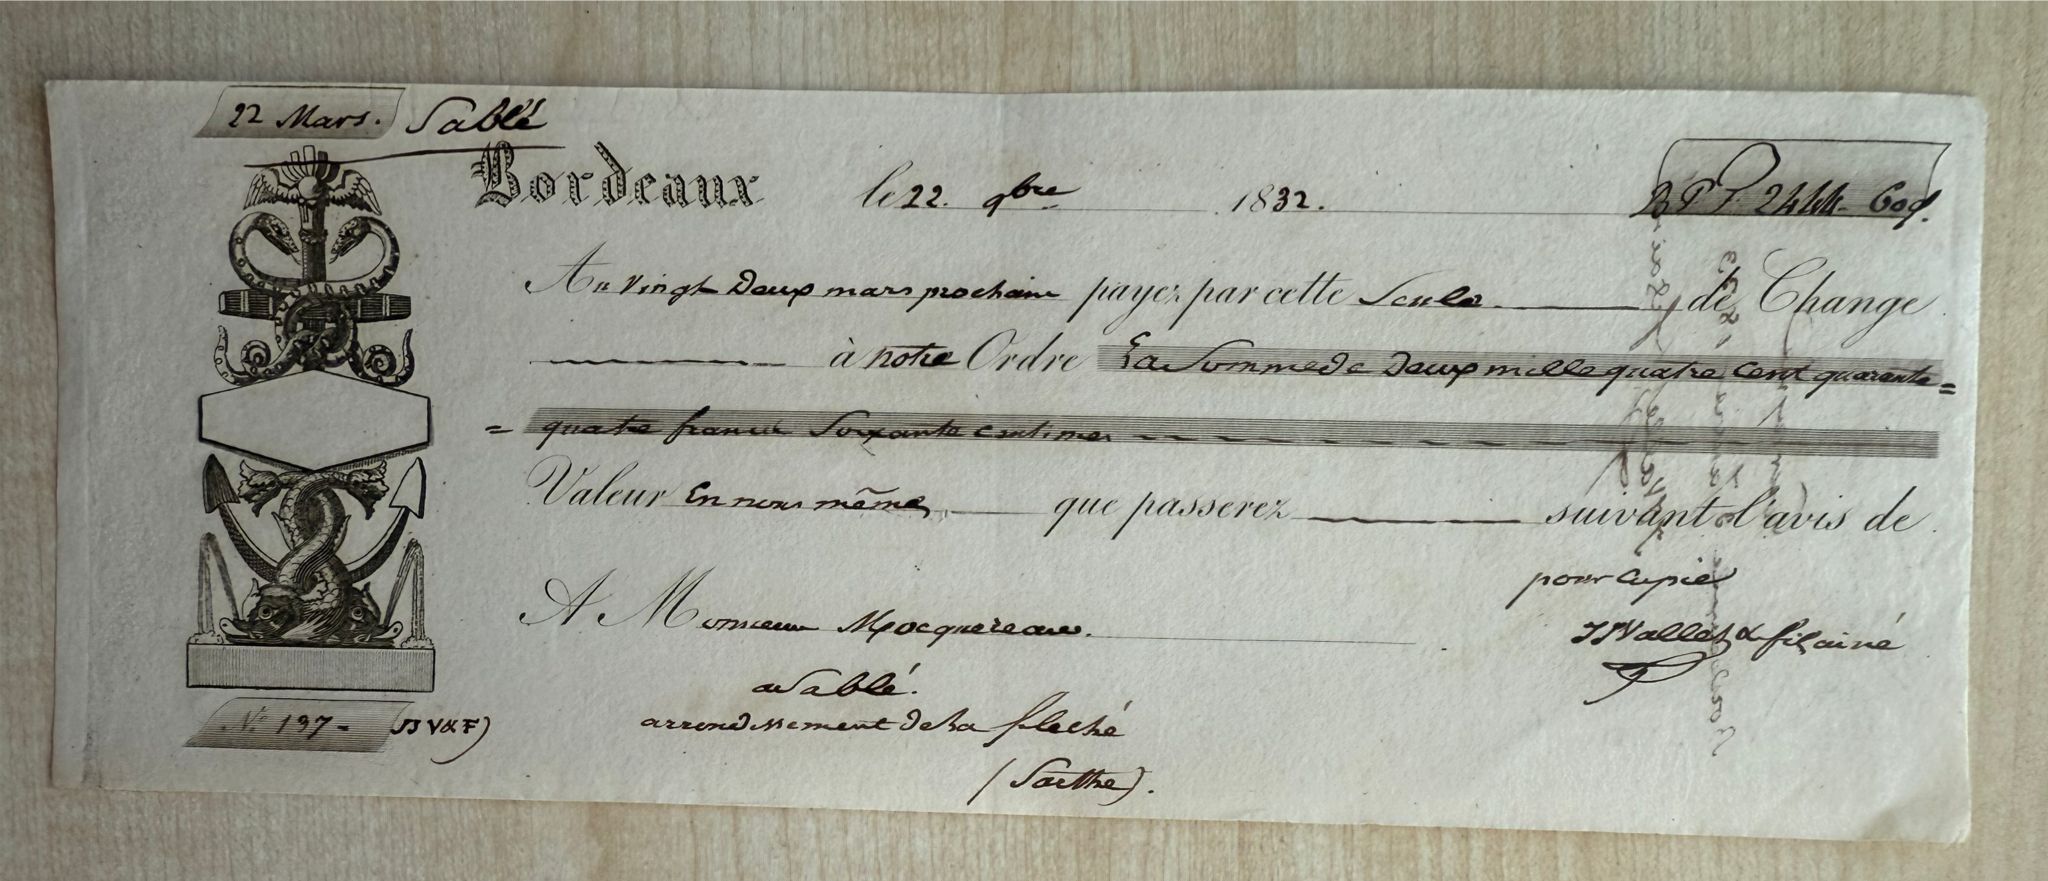 22 Mars. Sablé
Bordeaux le 22. 9bre 1832. B P F. 2444. 60 c.
Au vingt Deux mars prochain payez par cette Seule de Change
à notre Ordre La Somme de Deux mille quatre Cent quarante =
= quatre francs Soixante centimes
Valeur En nous même que passerez suivant l'avis de
pour Copie
A Monsieur Mocquereau. JJ Vallet & fils ainé
a Sablé.
N° 137 - (JJ V & F) arrondissement de La fleché
(Sarthe).